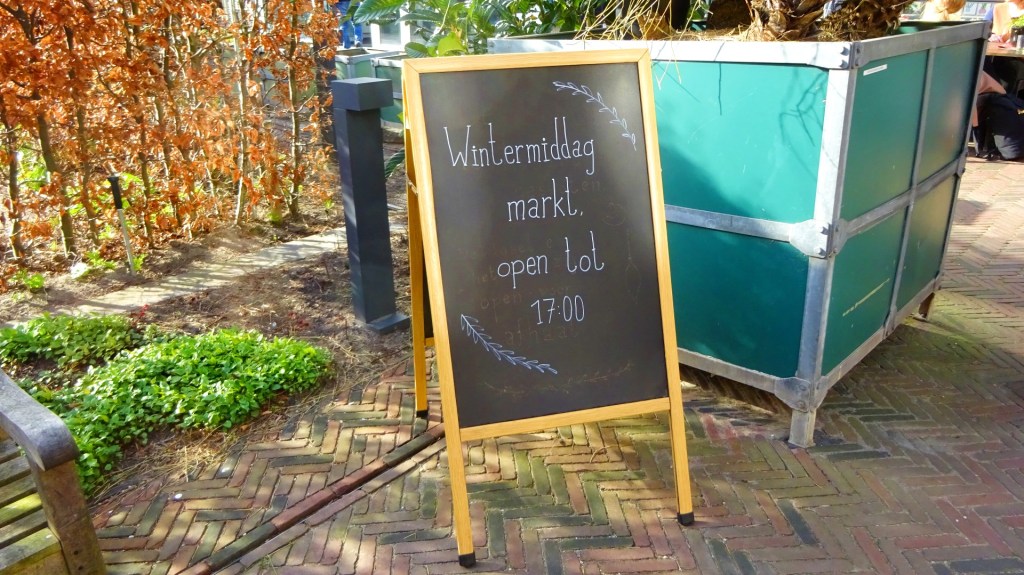 Wintermiddag
markt,
open tot
17:00